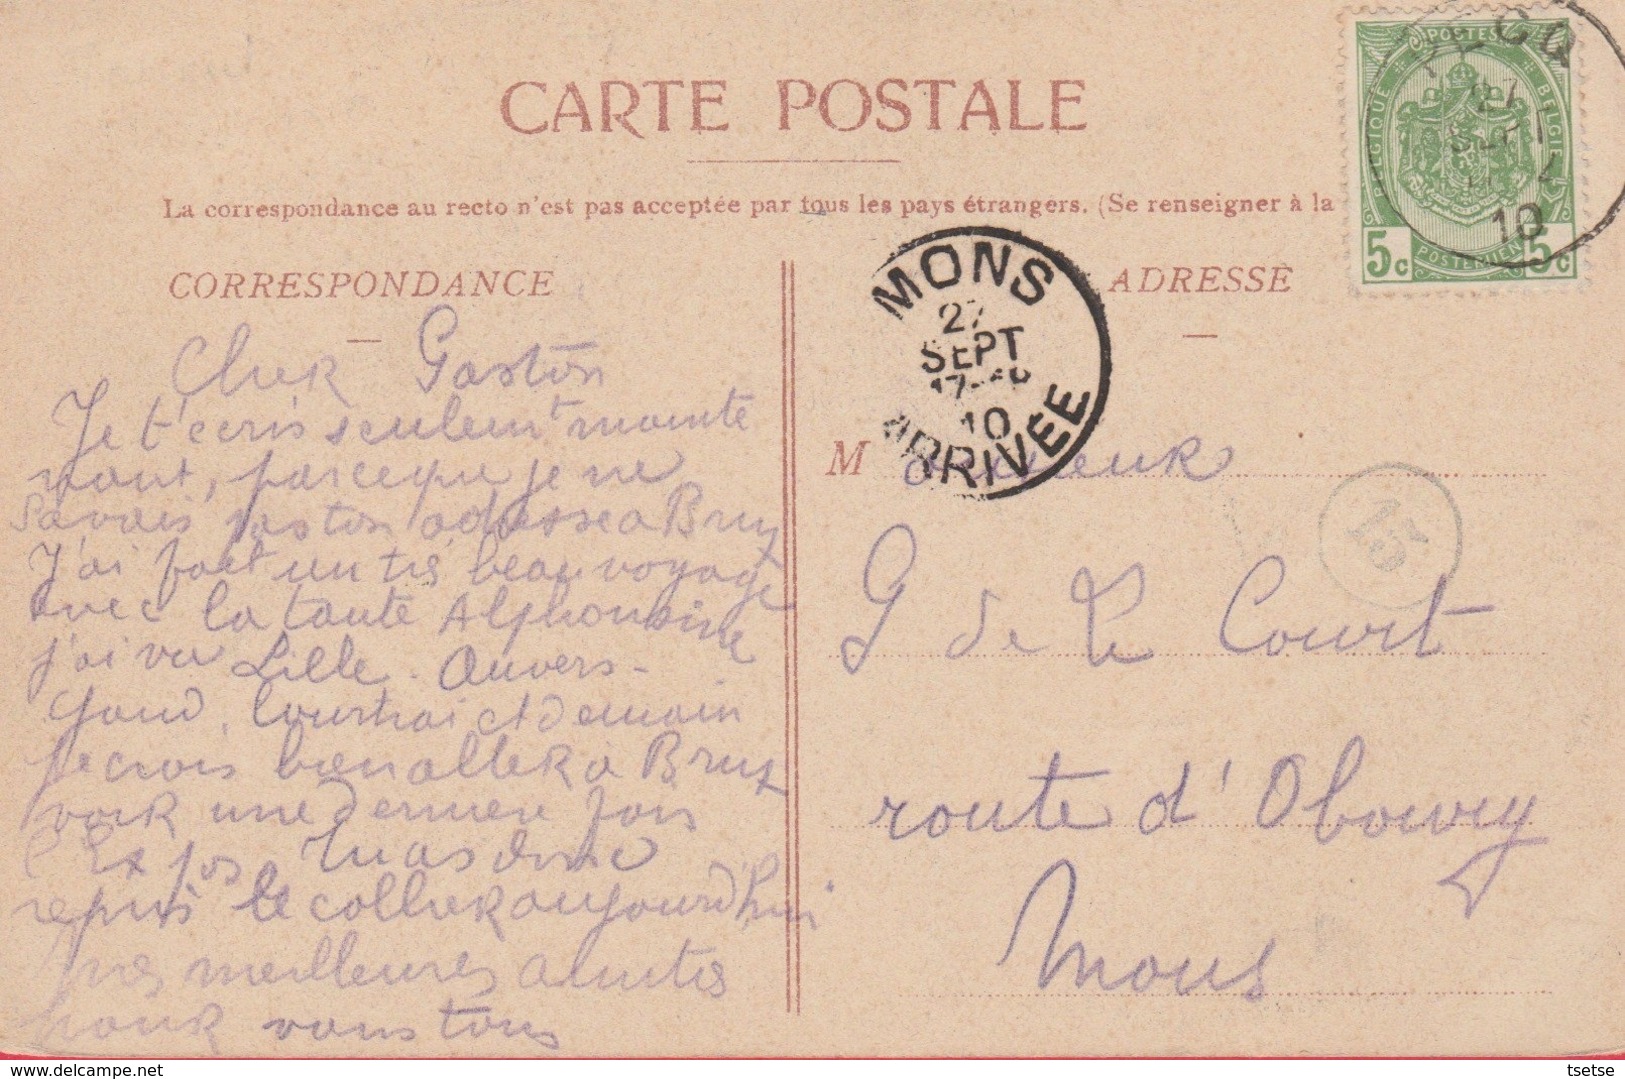 CARTE POSTALE
La correspondance au recto n'est pas acceptée par tous les pays étrangers. (Se renseigner à la
CORRESPONDANCE
ADRESSE
POSTES
BELGIQUE
BELGIE
5c POSTERIJEN 5c
27
SEPT
10
MONS
27
SEPT
10
ARRIVÉE
15
Cher Gaston
Je t'écris seulemt mainte
nant, parceque je ne
savais pas ton adresse a Brux
J'ai fait un trè beau voyage
avec la tante Alphonsine
j'ai vu Lille. Anvers -
Gand, Courtrai et demain
je crois bien aller a Brux
voir une derniere fois
l'Expos
repris le collier aujourd'hui
mes meilleures
pour vous tous
Monsieur
G de le Court
route d'Obourg
Mons
tsetse